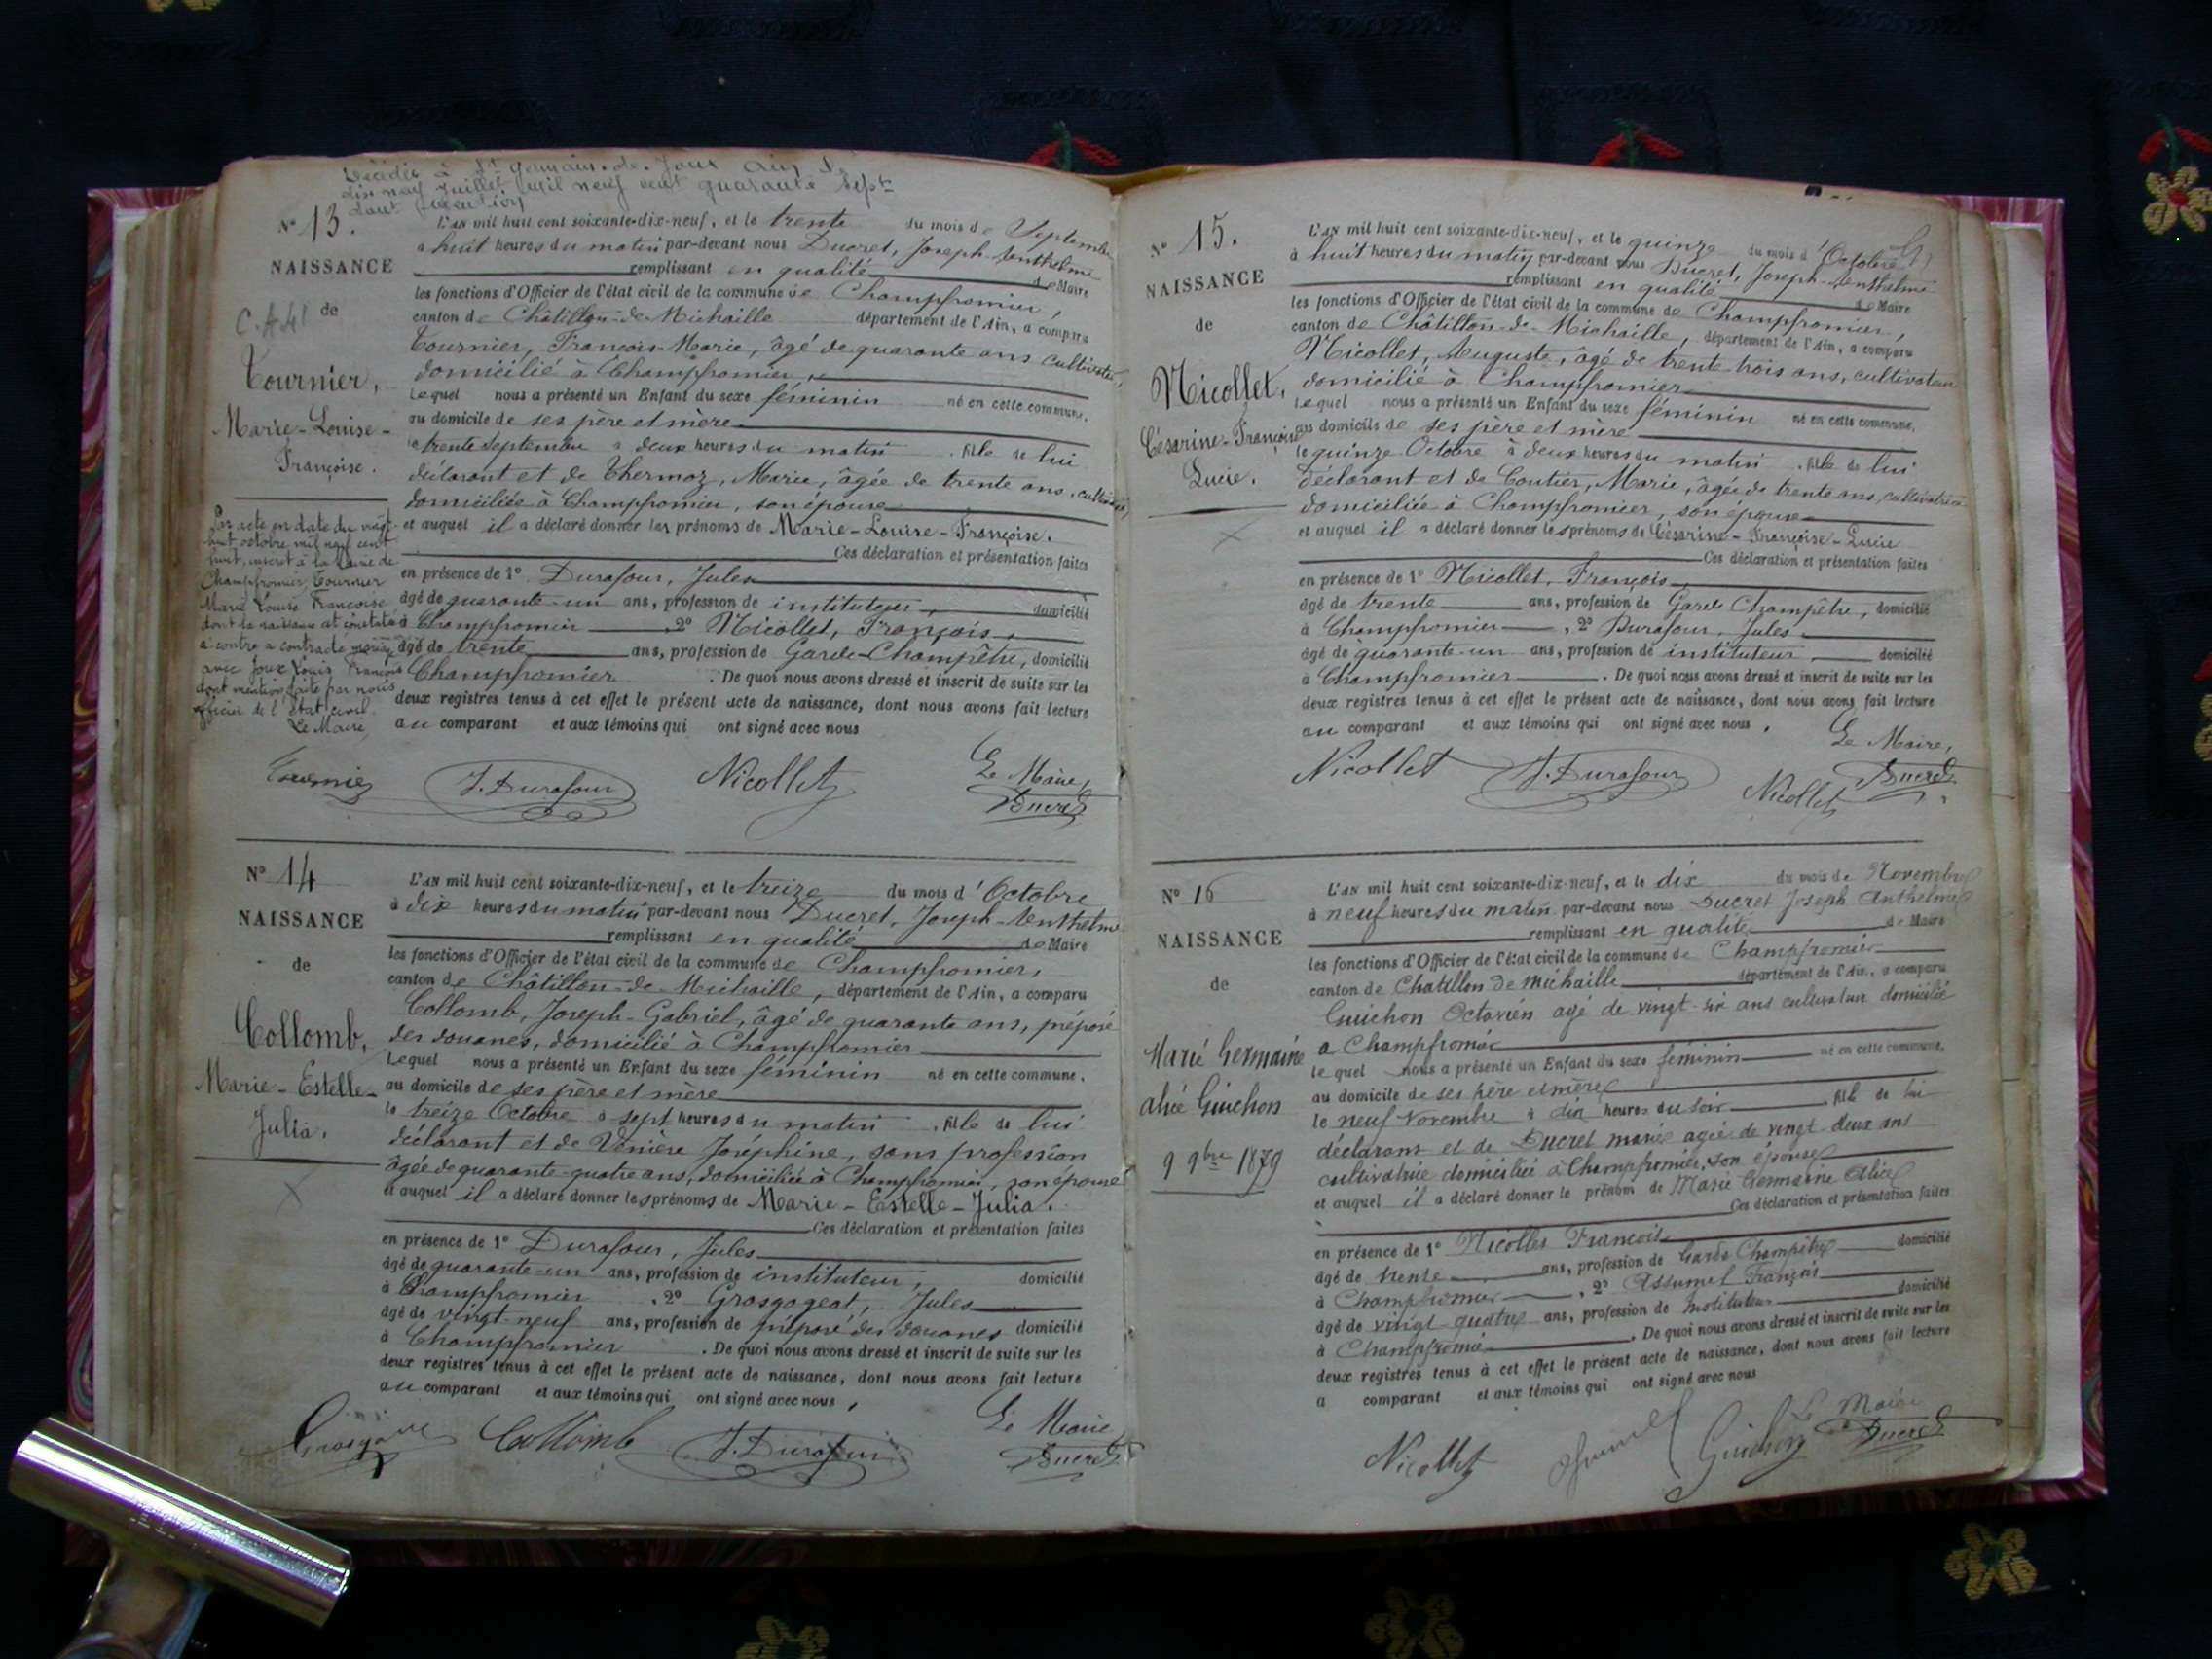 Décédée à St Germain-de-Joux Ain le
dix neuf juillet mil neuf cent quarante sept
dont mention
N° 13.
NAISSANCE
de
Tournier,
Marie-Louise-
Françoise.
Par acte en date du vingt-
huit octobre mil neuf cent
huit, inscrit à la Mairie de
Champfromier, Tournier
Marie Louise Françoise
dont la naissance est constatée
ci contre a contracté mariage
avec Joux Louis François
dont mention faite par nous
officier de l'état civil.
Le Maire
L'AN mil huit cent soixante-dix-neuf, et le trente du mois de Septembre
à huit heures du matin par-devant nous Ducret, Joseph-Anthelme
remplissant en qualité de Maire
les fonctions d'Officier de l'état civil de la commune de Champfromier,
canton de Châtillon-de-Michaille département de l'Ain, a comparu
Tournier, François-Marie, âgé de quarante ans cultivateur,
domicilié à Champfromier,
Lequel nous a présenté un Enfant du sexe féminin né en cette commune.
au domicile de ses père et mère
le trente Septembre à deux heures du matin . fille de lui
déclarant et de Thermoz, Marie, âgée de trente ans, cultivatrice,
domiciliée à Champfromier, son épouse
et auquel il a déclaré donner les prénoms de Marie-Louise-Françoise.
Ces déclaration et présentation faites
en présence de 1° Durafour, Jules
âgé de quarante-un ans, profession de instituteur, domicilié
à Champfromier , 2° Nicollet, François,
âgé de trente ans, profession de Garde-Champêtre, domicilié
Champfromier . De quoi nous avons dressé et inscrit de suite sur les
deux registres tenus à cet effet le présent acte de naissance, dont nous avons fait lecture
au comparant et aux témoins qui ont signé avec nous
Le Maire,
Tournier J. Durafour Nicollet Ducret
N° 14
NAISSANCE
de
Collomb,
Marie-Estelle-
Julia.
L'AN mil huit cent soixante-dix-neuf, et le treize du mois d'Octobre
à dix heures du matin par-devant nous Ducret, Joseph-Anthelme
remplissant en qualité de Maire
les fonctions d'Officier de l'état civil de la commune de Champfromier,
canton de Châtillon-de-Michaille, département de l'Ain, a comparu
Collomb, Joseph-Gabriel, âgé de quarante ans, préposé
des douanes, domicilié à Champfromier
Lequel nous a présenté un Enfant du sexe féminin né en cette commune.
au domicile de ses père et mère
le treize Octobre à sept heures du matin . fille de lui
déclarant et de Venière Joséphine, sans profession
âgée de quarante-quatre ans, domiciliée à Champfromier, son épouse
et auquel il a déclaré donner les prénoms de Marie-Estelle-Julia.
Ces déclaration et présentation faites
en présence de 1° Durafour, Jules
âgé de quarante-un ans, profession de instituteur, domicilié
à Champfromier , 2° Grosgogeat, Jules
âgé de vingt-neuf ans, profession de préposé des douanes domicilié
à Champfromier . De quoi nous avons dressé et inscrit de suite sur les
deux registres tenus à cet effet le présent acte de naissance, dont nous avons fait lecture
au comparant et aux témoins qui ont signé avec nous,
Le Maire
Collomb J. Durafour Ducret
N° 15.
NAISSANCE
de
Nicollet,
Césarine-Françoise
Lucie.
L'AN mil huit cent soixante-dix-neuf, et le quinze du mois d'Octobre
à huit heures du matin par-devant nous Ducret, Joseph-Anthelme
remplissant en qualité de Maire
les fonctions d'Officier de l'état civil de la commune de Champfromier,
canton de Châtillon-de-Michaille, département de l'Ain, a comparu
Nicollet, Auguste, âgé de trente-trois ans, cultivateur
domicilié à Champfromier
Lequel nous a présenté un Enfant du sexe féminin né en cette commune,
au domicile de ses père et mère
le quinze Octobre à deux heures du matin . fille de lui
déclarant et de Coutier, Marie, âgée de trente ans, cultivatrice
domiciliée à Champfromier, son épouse
et auquel il a déclaré donner les prénoms de Césarine-Françoise-Lucie
Ces déclaration et présentation faites
en présence de 1° Nicollet, François
âgé de trente ans, profession de Garde Champêtre, domicilié
à Champfromier , 2° Durafour, Jules
âgé de quarante-un ans, profession de instituteur, domicilié
à Champfromier . De quoi nous avons dressé et inscrit de suite sur les
deux registres tenus à cet effet le présent acte de naissance, dont nous avons fait lecture
au comparant et aux témoins qui ont signé avec nous,
Le Maire,
Nicollet J. Durafour Nicollet Ducret
N° 16
NAISSANCE
de
Marie Germaine
Alice Guichon
9 9bre 1879
L'AN mil huit cent soixante-dix-neuf, et le dix du mois de Novembre
à neuf heures du matin par-devant nous Ducret Joseph Anthelme
remplissant en qualité de Maire
les fonctions d'Officier de l'état civil de la commune de Champfromier
canton de Chatillon de Michaille département de l'Ain, a comparu
Guichon Octavien agé de vingt-six ans cultivateur domicilié
a Champfromier
lequel nous a présenté un Enfant du sexe féminin né en cette commune,
au domicile de ses père et mère
le neuf Novembre à dix heures du soir . fille de lui
déclarant et de Ducret marie agée de vingt-deux ans
cultivatrice domiciliée à Champfromier, son épouse
et auquel il a déclaré donner le prénom de Marie Germaine Alice
Ces déclaration et présentation faites
en présence de 1° Nicollet François
âgé de trente ans, profession de Garde Champêtre domicilié
à Champfromier , 2° Assumel François
âgé de vingt-quatre ans, profession de Instituteur domicilié
à Champfromier . De quoi nous avons dressé et inscrit de suite sur les
deux registres tenus à cet effet le présent acte de naissance, dont nous avons fait lecture
a comparant et aux témoins qui ont signé avec nous
Le Maire
Nicollet Guichon Ducret